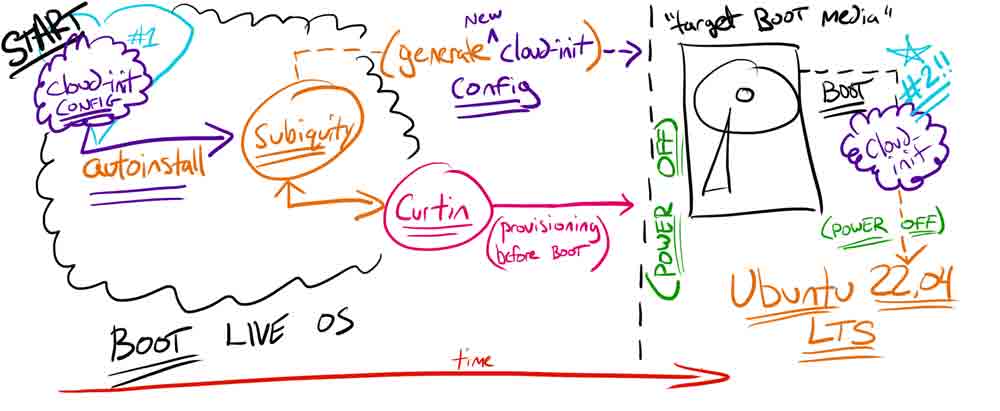 START
#1
cloud-init
CONFIG
autoinstall
Subiquity
(generate New cloud-init)
Config
Curtin
(provisioning
before BOOT)
BOOT LIVE OS
time
(POWER OFF)
"target BOOT Media"
BOOT
#2!!
Cloud-
init
(POWER OFF)
Ubuntu 22.04
LTS